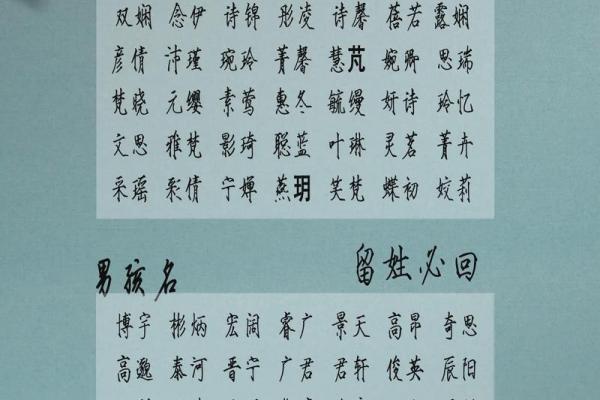 双娴 念伊 诗锦 彤凌 诗馨 蓓若 露娴
彦倩 沛瑾 琬玲 菁馨 慧芃 婉卿 思瑞
梵晓 元缨 素莺 惠冬 毓缦 妍诗 玲忆
文思 雅梵 影琦 聪蓝 叶琳 灵茗 菁卉
采瑶 彩倩 宁婵 燕玥 笑梵 蝶初 姣莉
男孩名 留姓必回
博宇 彬炳 宏阔 睿广 景天 高昂 奇思
高邈 泰河 晋宁 广君 君轩 俊英 辰阳